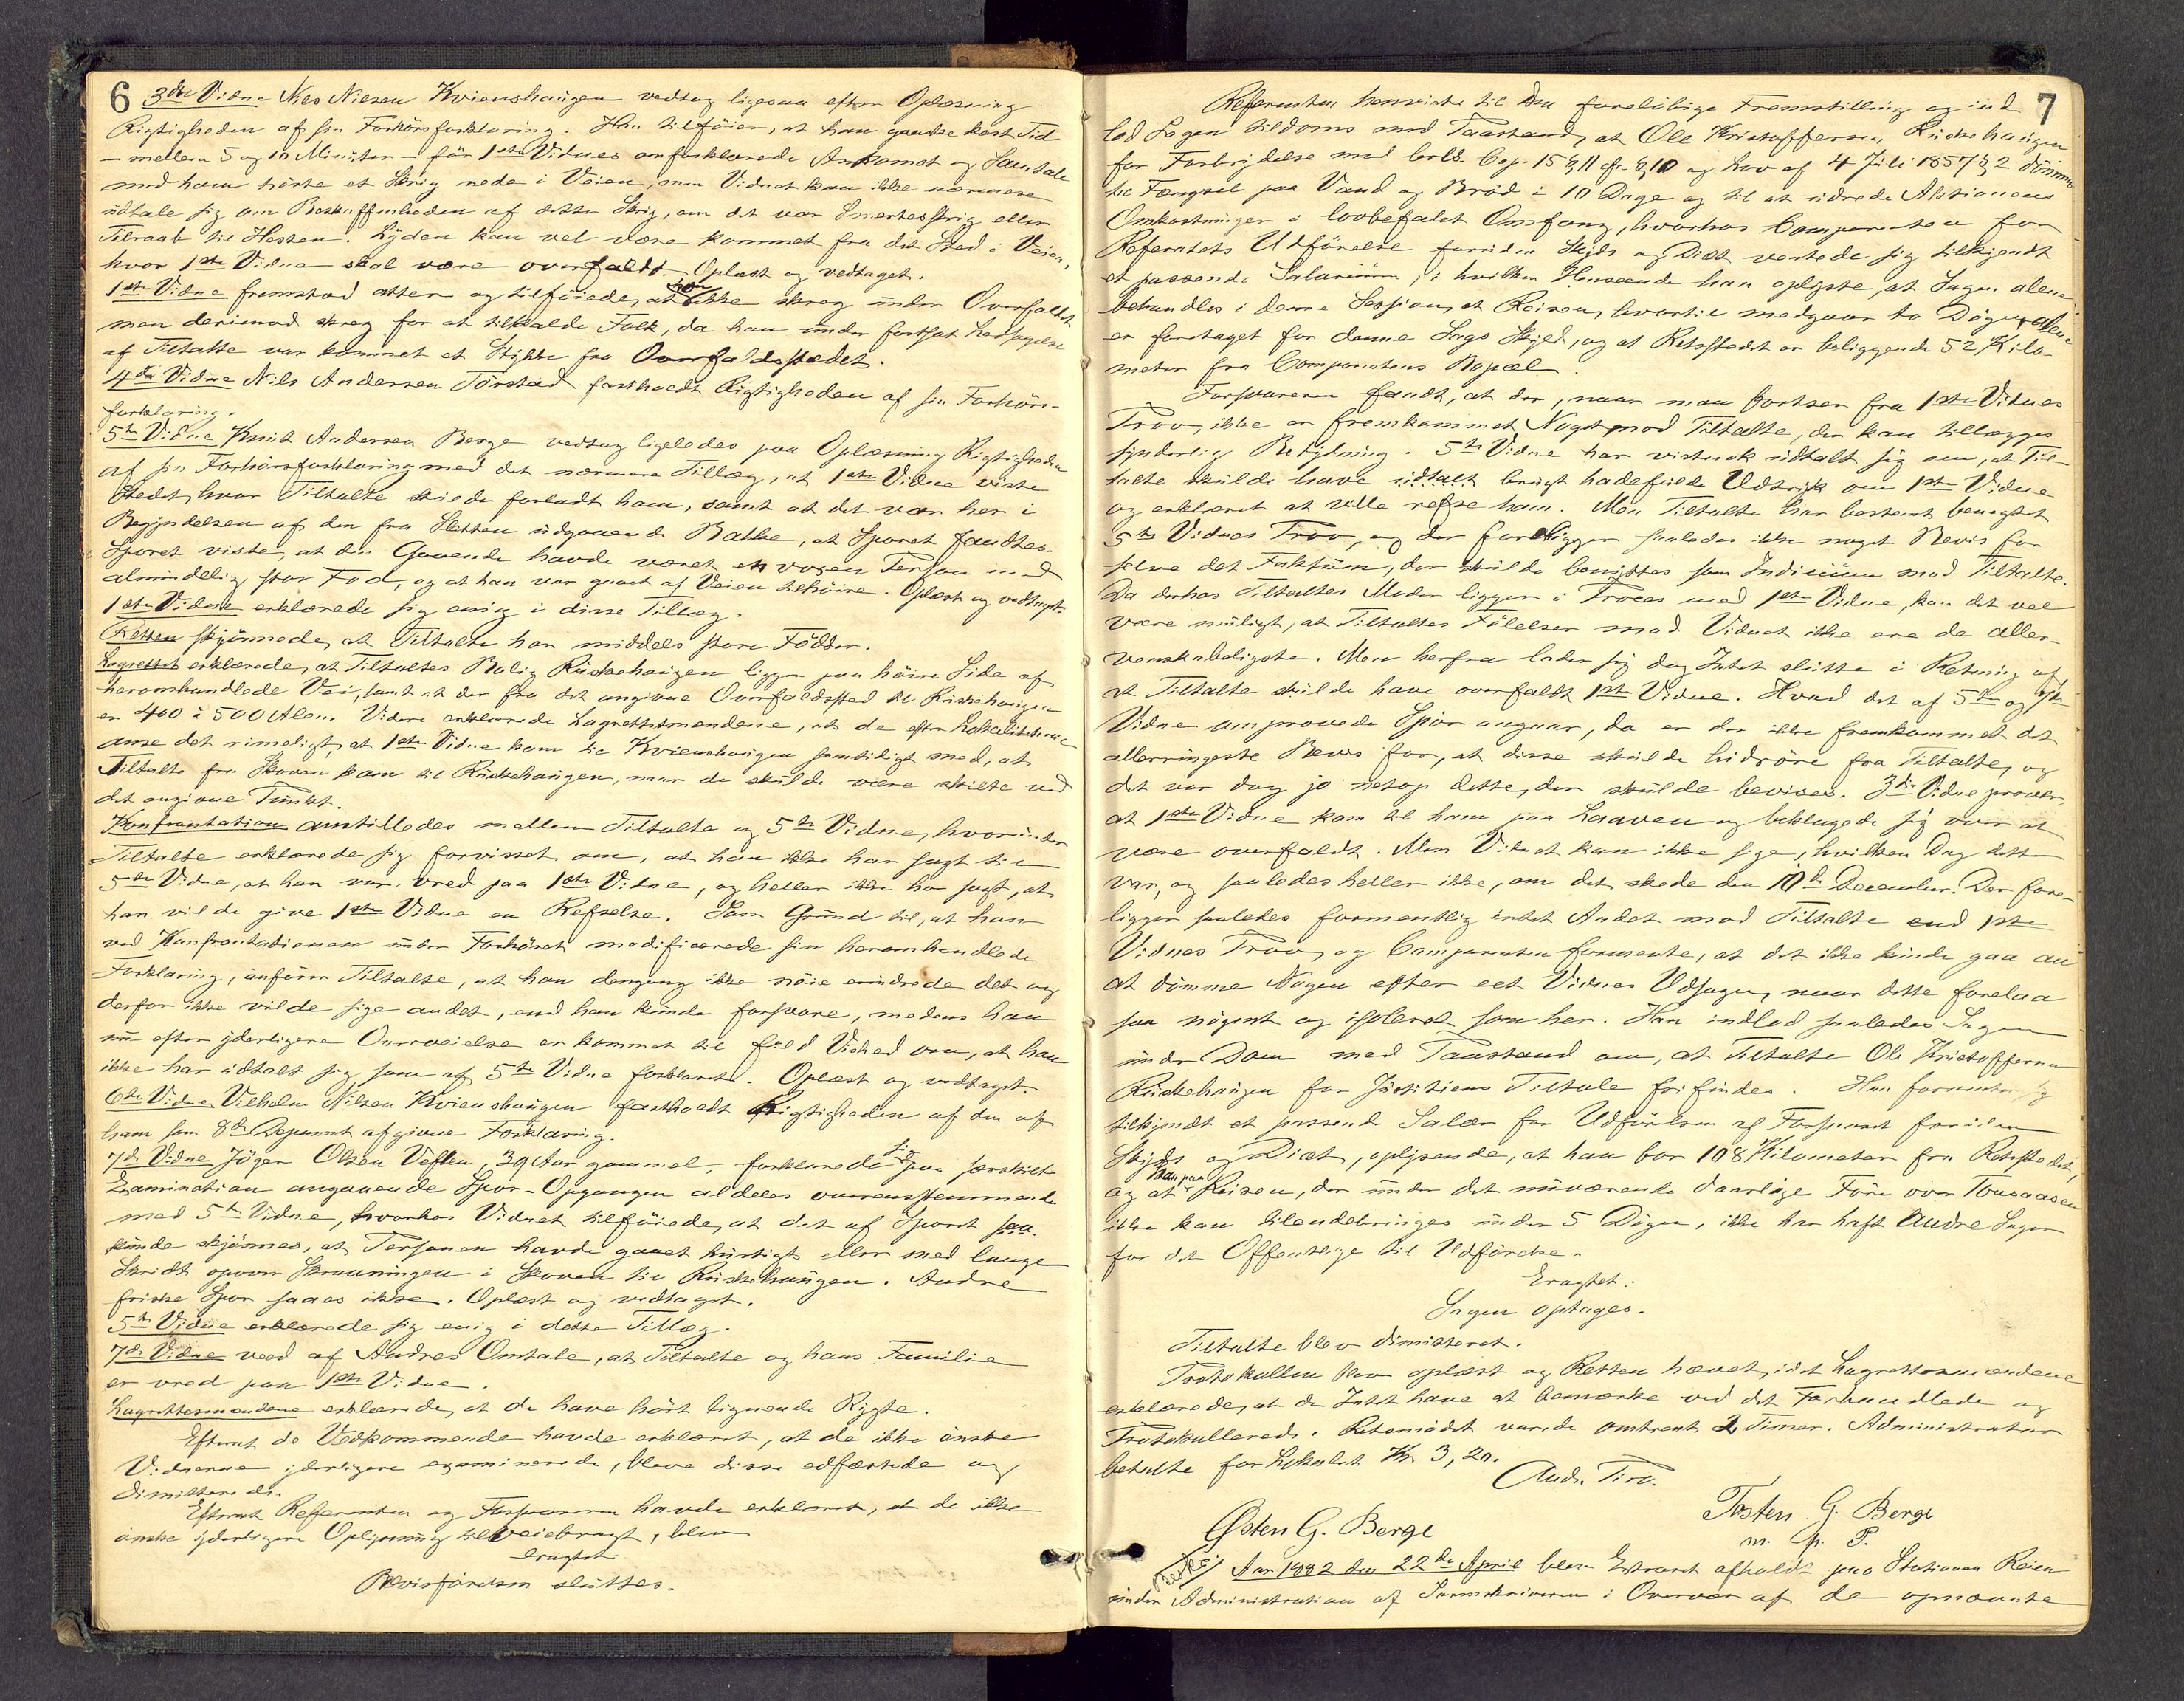 6
3die Vidne Nils Nilsen Kvienshaugen vedtog ligesaa efter Oplæsning
Rigtigheden af sin Forhörsforklaring. Han tilföier, at han ganske kort Tid
– mellem 5 og 10 Minüter – för 1ste Vidnes omforklarede Ankomst og Samtale
med ham hörte et Skrig nede i Veien, men Vidnet kan ikke nærmere
üdtale sig om Beskaffenheden af dette Skrig, om det var Smertesskrig eller
Tilraab til Hesten. Lyden kan vel være kommet fra det Sted i Veien,
hvor 1ste Vidne skal være overfaldt. Oplæst og vedtaget.
1ste Vidne fremstod atter og tilföiede, at han ikke skreg ünder Overfaldet
men derimod skreg for at tilkalde Folk, da han ünder fortsat Ledsagelse
af Tiltalte var kommet et Stykke fra Overfaldsstedet.
4de Vidne Nils Andersen Törstad fastholdt Rigtigheden af sin Forhörs-
forklaring.
5te Vidne Knüt Andersen Berge vedtog ligeledes paa Oplæsning Rigtigheden
af sin Forhörsforklaring med det nærmere Tillæg, at 1ste Vidne viste
Stedet, hvor Tiltalte skulde forladt ham, samt at det var her i
Begyndelsen af den fra Sletten üdgaaende Bakke, at Sporet fandtes.
Sporet viste, at den Gaaende havde været en voxen Person med
almindelig stor Fod, og at han var gaaet af Veien tilhöire. Oplæst og vedtaget.
1ste Vidne erklærede sig enig i disse Tillæg.
Retten skjönnede, at Tiltalte har middels store Födder.
Lagrettet erklærede, at Tiltaltes Bolig Rüdsehaugen ligger paa höire Side af
heromhandlede Vei, samt at der fra det angivne Overfaldssted til Rüdsehaugen
er 400 à 500 Alen. Videre erklærede Lagrettesmændene, at de efter Lokaliteterne
anse det rimeligt, at 1ste Vidne kom til Kvienshaugen samtidigt med, at
Tiltalte fra Skoven kom til Rüdsehaugen, naar de skülde være skilte ved
det angivne Pünkt.
Konfrontation anstilledes mellem Tiltalte og 5te Vidne, hvoründer
Tiltalte erklærede sig forvisset om, at han ikke har sagt til
5te Vidne, at han var vred paa 1ste Vidne, og heller ikke har sagt, at
han vilde give 1ste Vidne en Refselse. Som Gründ til, at han
ved Konfrontationen ünder Forhöret modificerede sin heromhandlede
Forklaring, anförer Tiltalte, at han dengang ikke nöie erindrede det og
derfor ikke vilde sige andet, end han künde forsvare, medens han
nü efter yderligere Overveielse er kommet til füld Vished om, at han
ikke har üdtalt sig som af 5te Vidne forklaret. Oplæst og vedtaget.
6te Vidne, Vilhelm Nilsen Kvienshaugen fastholdt Rigtigheden af den af
ham som 8de Deponent afgivne Forklaring.
7de Vidne Jöger Olsen Veflen, 39 Aar gammel, forklarede sig paa særskilt
Examination angaaende Spor-Opgangen aldeles overensstemmende
med 5te Vidne, hvorhos Vidnet tilföiede, at det af Sporet
künde skjönnes, at Personen havde gaaet hürtigt eller med lange
Skridt opover Skraaningen i Skoven til Rüdsehaugen. Andre
friske Spor saaes ikke. Oplæst og vedtaget.
5te Vidne erklærede sig enig i dette Tillæg.
7de Vidne veed af Andres Omtale, at Tiltalte og hans Familie
er vred paa 1ste Vidne.
Lagrettesmændene erklærede, at de have hört lignende Rygte.
Efterat de Vedkommende havde erklæret, at de ikke önske
Vidnerne yderligere examinerede, bleve disse edfæstede og
dimitterede.
Efterat Refferenten og Forsvareren havde erklæret, at de ikke
önske yderligere Oplysning tilveiebragt, blev
eragtet:
Bevisförelsen slüttes.
7
Referenten henviste til den foreløbige Fremstilling og ind
lod Sagen tildoms med Paastand, at Ole Kristoffersen Rüdsehaugen
for Forbrydelse mod Crld. Cap. 15 § 11 cfr. § 10 og Lov af 4 Jüli 1857 § 2 dömmes
til Fængsel paa Vand og Bröd i 10 Dage og til at üdrede Aktionens
Omkostninger i lovbefalet Omfang, hvorhos Comparenten for
Referatets Udförelse foruden Skyds og Diæt ventede sig tilkjendt
et passende Salarium, i hvilken Henseende han oplyste, at Sagen alene
behandles i denne Session, at Reisen, hvortil medgaar to Døgn, alene
er foretaget for denne Sags Skyld, og at Retsstedet er beliggende 52 Kilo-
meter fra Comparentens Bopæl.
Forsvareren fandt, at der, naar man bortser fra 1ste Vidnes
Prov, ikke er fremkommet Noget mod Tiltalte, der kan tillægges
synderlig Betydning. 5te Vidne har vistnok üdtalt sig om, at Til-
talte skülde have üdtalt brügt hadefülde Udtryk om 1ste Vidne
og erklæret at ville refse ham. Men Tiltalte har bestemt benegtet
5te Vidnes Prov, og der foreligger saaledes ikke noget Bevis for
selve det Faktüm, der skülde benyttes som Indicium mod Tiltalte.
Da derhos Tiltaltes Moder ligger i Proces med 1ste Vidne, kan det vel
være müligt, at Tiltaltes Fölelser mod Vidnet ikke ere de aller-
venskabeligste. Men herfra lader sig dog Intet slütte i Retning af,
at Tiltalte skülde have overfaldt 1ste Vidne. Hvad det af 5te og 7de
Vidne omprovede Spor angaar, da er der ikke fremkommet det
allerringeste Bevis for, at disse skülde hidröre fra Tiltalte, og
det var dog jo netop dette, der skülde bevises. 3die Vidne prover,
at 1ste Vidne kom til ham paa Laaven og beklagede sig over at
være overfaldt. Men Vidnet kan ikke sige, hvilken Dag dette
var, og saaledes heller ikke, om det skede den 10de December. Der fore-
ligger saaledes formentlig intet Andet mod Tiltalte end 1ste
Vidnes Prov, og Comparenten formente, at det ikke künde gaa an
at dömme Nogen efter eet Vidnes Udsagn, naar dette forelaa
saa nögent og isoleret som her. Han indlod saaledes Sagen
ünder Dom med Paastand om, at Tiltalte Ole Kristoffersen
Rüdsehaugen for Jüstitiens Tiltale frifindes. Han formente sig
tilkjendt et passende Salær for Udförelsen af Forsvaret foruden
Skyds og Diæt, oplysende, at han bor 108 Kilometer fra Retsstedet,
og at han paa Reisen, der ünder det nüværende daarlige Före over Tonsaasen
ikke kan tilendebringes ünder 5 Dögn, ikke har haft andre Sager
for det Offentlige til Udförelse.
Eragtet:
Sagen optages.
Tiltalte blev dimitteret.
Protokollen blev oplæst og Retten hævet, idet Lagrettesmændene
erklærede, at de Intet have at bemærke ved det Forhandlede og
Protokollerede. Retsmödet varede omtrent 2 Timer. Administrator
betalte for Lokalet Kr 3,20.
Østen G. Berge
Tosten G. Berge
m. p. P.
Aar 1882 den 22de April blev Extraret afholdt paa Stationen Reien
ünder Administration af Sorenskriveren i Overvær af de opnævnte